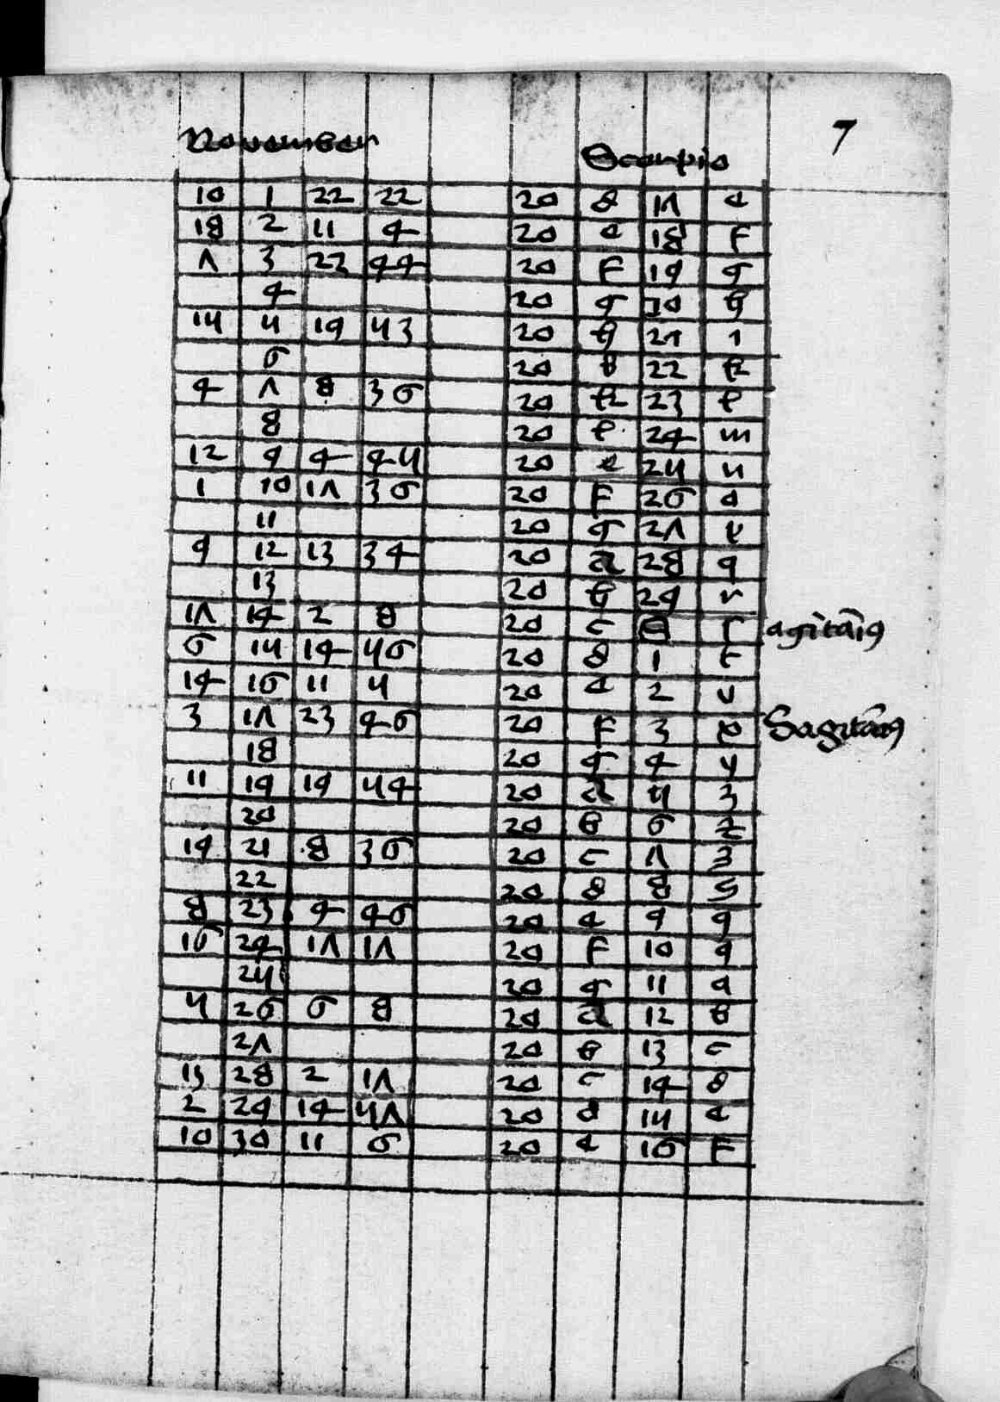 7
November Scorpio
10 1 22 22 20 d 17 e
18 2 11 4 20 e 18 f
7 3 22 44 20 f 19 g
4 20 g 20 h
15 5 19 53 20 h 21 i
6 20 22 k
4 7 8 36 20 k 23 l
8 20 l 24 m
12 9 4 45 20 e 25 n
1 10 17 36 20 f 26 o
11 20 g 27 p
9 12 13 34 20 a 28 q
13 20 b 29 r
17 14 2 8 20 c 0 s agitariꝰ
6 15 14 56 20 d 1 t
14 16 11 5 20 e 2 v
3 17 23 46 20 f 3 x Sagitariꝰ
18 20 g 4 y
11 19 19 54 20 a 5 z
20 20 b 6
19 21 8 36 20 c 7
22 20 d 8
8 23 4 46 20 e 9
16 24 17 17 20 f 10
25 20 g 11 a
5 26 6 8 20 a 12 b
27 20 b 13 c
13 28 2 17 20 c 14 d
2 29 14 57 20 d 15 e
10 30 11 6 20 e 16 f